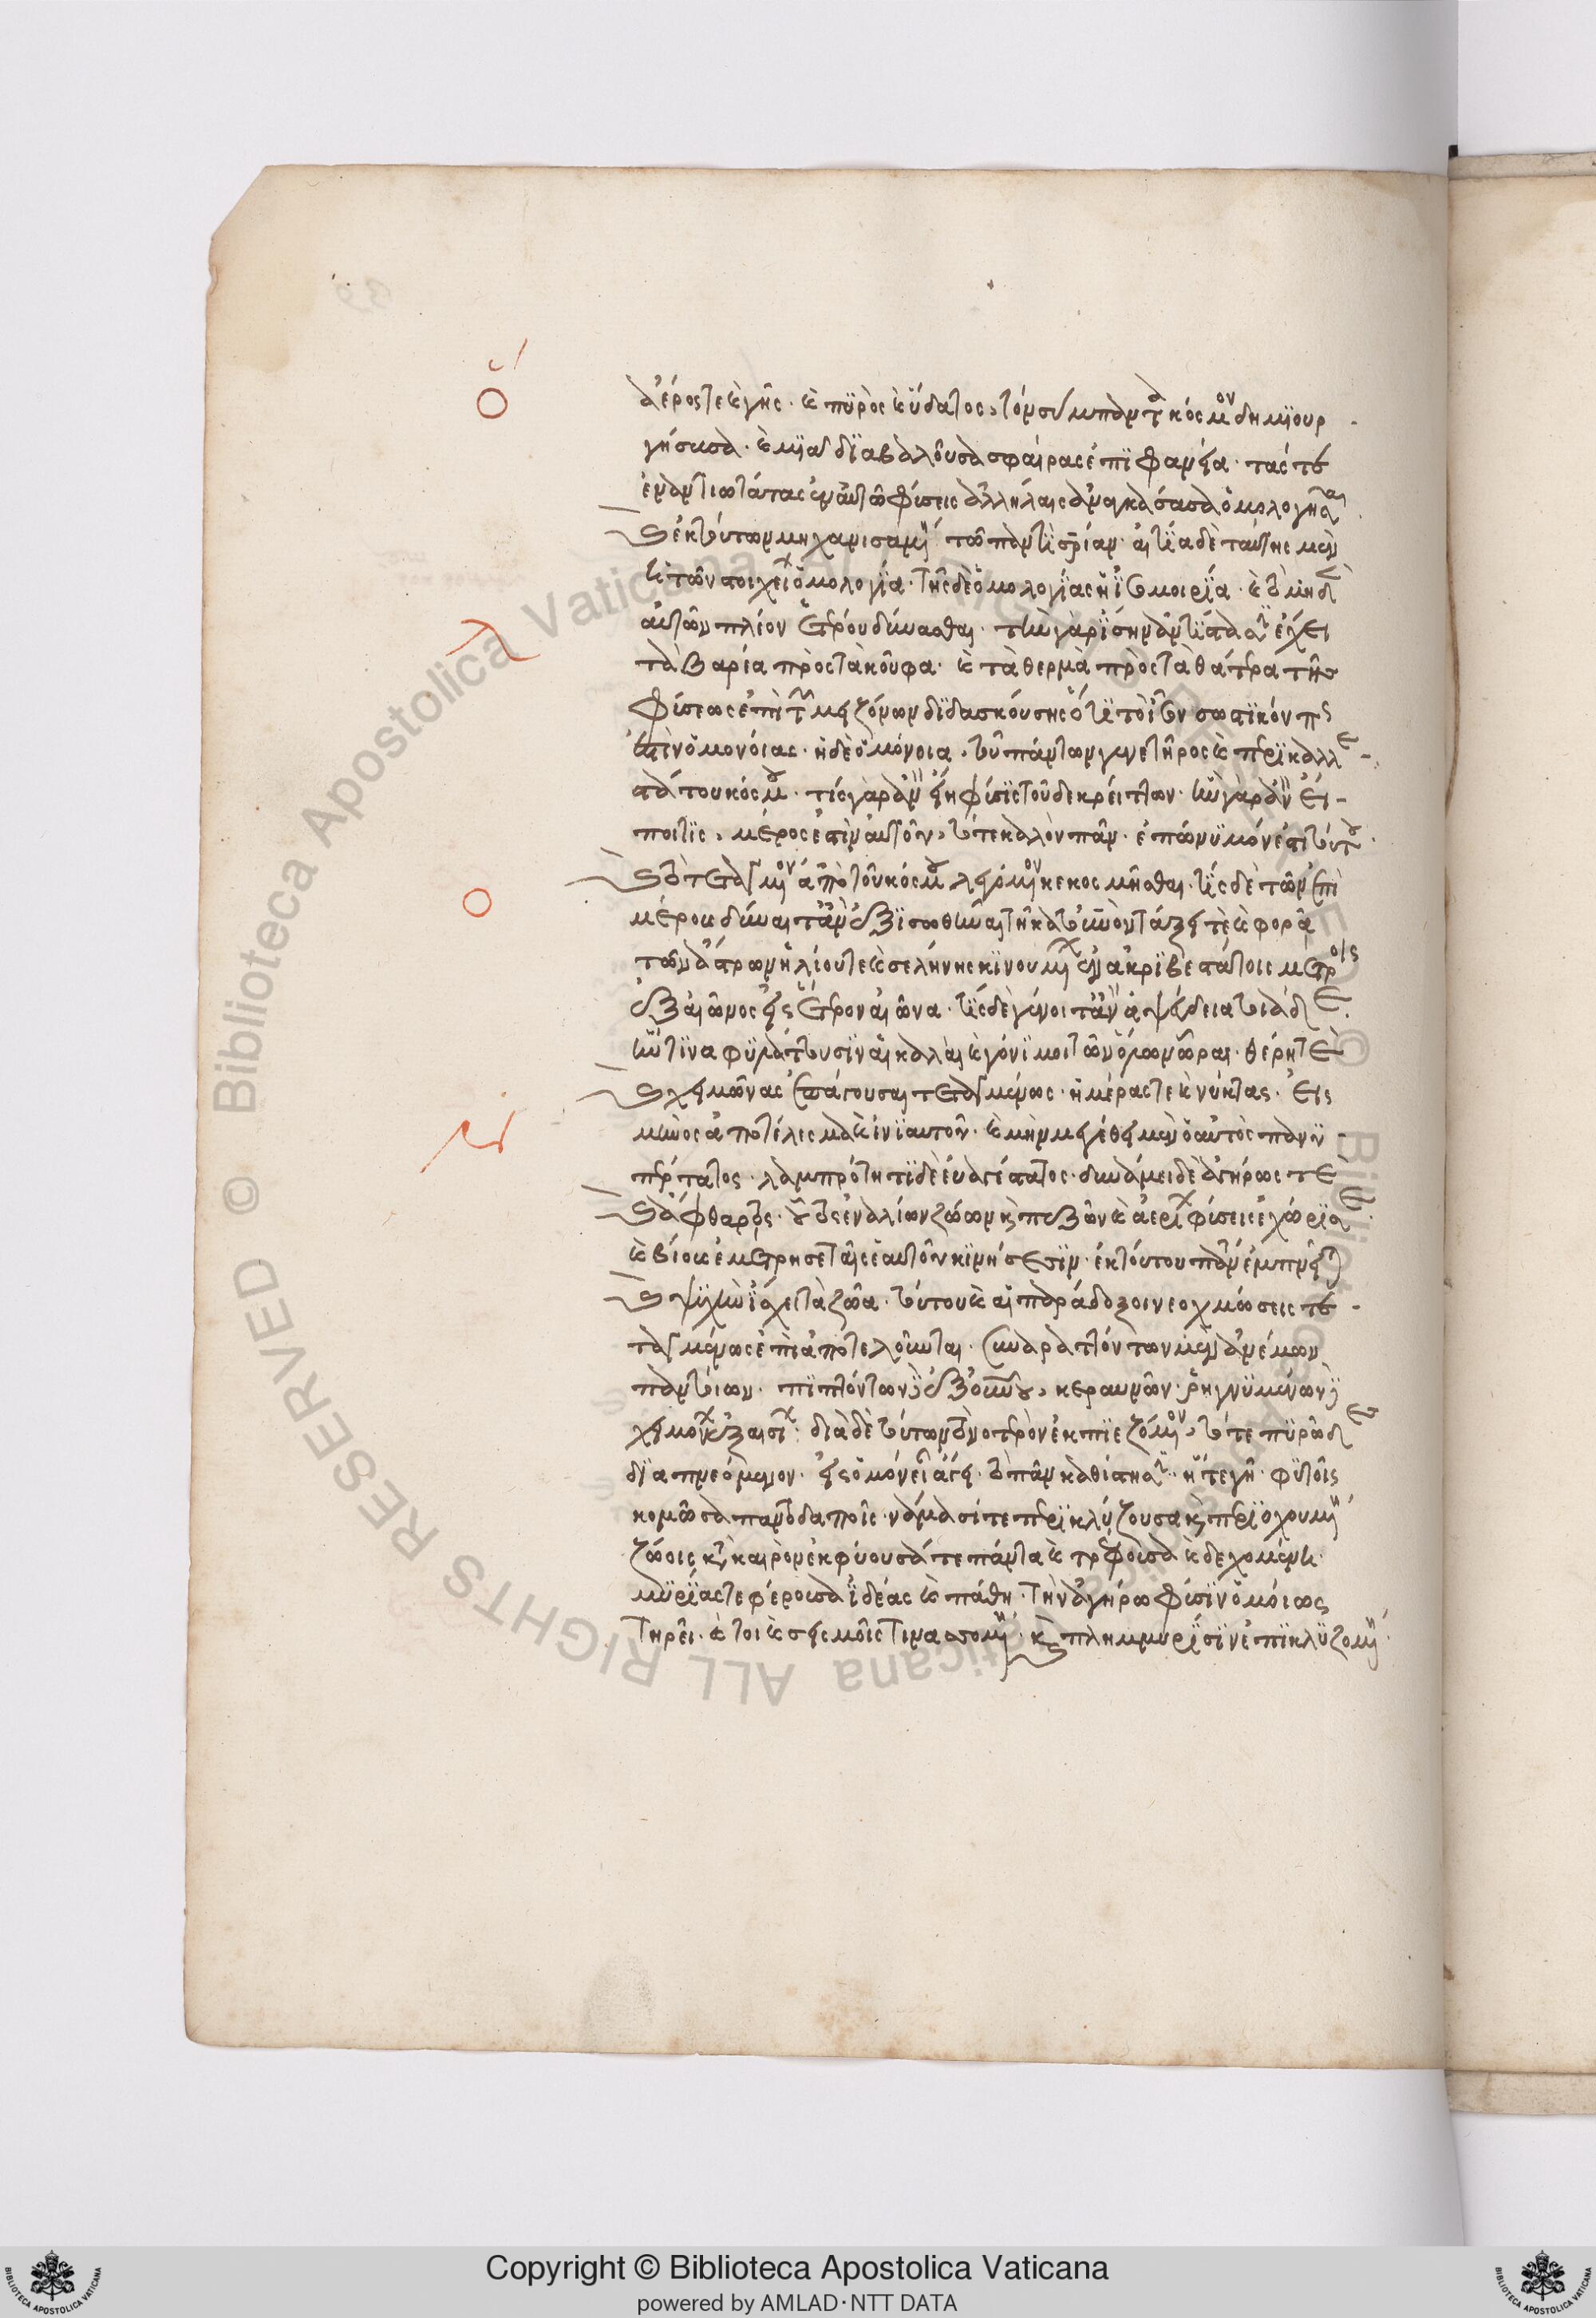 ἀέρος τε καὶ γῆς· καὶ πυρὸς καὶ ὕδατος, τὸν σύμπαντα κόσμον δημιουρ
γήσασα· καὶ μιᾷ διαλαβοῦσα σφαίρας ἐπιφανείᾳ· τάς τε
ἐναντιωτάτας ἐν αὐτῷ φύσεις ἀλλήλαις ἀναγκάσασα ὁμολογῆσαι
καὶ ἐκ τούτων μηχανησαμένη τῷ παντὶ σωτηρίαν· αἰτία δὲ ταύτης μὲν
ἡ τῶν στοιχείων ὁμολογία· τῆς δὲ ὁμολογίας ἡ ἰσομοιρία· καὶ τὸ μηδὲν
αὐτῶν πλέον ἕτερον ἑτέρου δύνασθαι· τὴν γὰρ ἴσην ἀντίστασιν ἔχει
τὰ βαρέα πρὸς τὰ κοῦφα· καὶ τὰ θερμὰ πρὸς τὰ θάτερα τῆς
φύσεως ἐπὶ τῶν μειζόνων διδασκούσης ὅτι τὸ ἴσον σωστικόν πώς
ἐστιν ὁμονοίας· ἡ δὲ ὁμόνοια, τοῦ πάντων γενετῆρος καὶ περικαλλε
στάτου κόσμου· τίς γὰρ ἂν εἴη φύσις τοῦδε κρείττων· ἣν γὰρ ἂν εἴ
ποι τις, μέρος ἐστὶν αὐτοῦ, τό τε καλὸν πᾶν· ἐπώνυμόν ἐστι τούτου
καὶ τὸ τεταγμένον ἀπὸ τοῦ κόσμου λεγόμενον κεκοσμῆσθαι· τίς δὲ τῶν ἐπὶ
μέρους δύναιτ' ἂν ἐξισωθῆναι τῇ κατ' οὐρανὸν τάξει τε καὶ φορᾷ
τῶν ἄστρων ἡλίου τε καὶ σελήνης κινουμένων ἐν ἀκριβεστάτοις μέτροις
ἐξ αἰῶνος εἰς ἕτερον αἰῶνα· τίς δὲ γένοιτ' ἂν ἀψεύδεια τοιάδε
ἥντινα φυλάττουσιν αἱ καλαὶ καὶ γόνιμοι τῶν ὅλων ὧραι· θέρη τε
καὶ χειμῶνας ἐπάγουσαι τεταγμένως· ἡμέρας τε καὶ νύκτας· εἰς
μηνὸς ἀποτέλεσμα καὶ ἐνιαυτοῦ· καὶ μὴν μεγέθει μὲν ὁ αὐτὸς πανυ
πέρτατος· λαμπρότητι δὲ εὐαγέστατος· δυνάμει δὲ ἀγήρως τε
καὶ ἄφθαρτος· οὗτος ἐναλίων ζῴων καὶ πεζῶν καὶ ἀερίων φύσεις ἐχώρισε
καὶ βίους ἐμέτρησε ταῖς ἑαυτοῦ κινήσεσιν· ἐκ τούτου πάντα ἐμπνεῖ
καὶ ψυχὴν ἴσχει τὰ ζῷα· τούτου καὶ αἱ παράδοξοι νεοχμώσεις τε
ταγμένως ἐπιαποτελοῦνται· συναραττόντων μὲν ἀνέμων
παντοίων· πιπτόντων δὲ ἐξ οὐρανοῦ, κεραυνῶν· ῥηγνυμένων δὲ
χειμώνων ἐξαισίων· διὰ δὲ τούτων τὸ νοτερὸν ἐκπιεζόμενον, τό τε πυρῶδες
διαπνεόμενον· εἰς ὁμόνοιαν ἄγει· τὸ πᾶν καθίστησιν· ἥ τε γῆ· φυτοῖς
κομῶσα παντοδαποῖς· νάμασί τε περικλύζουσα καὶ περιοχουμένη
ζῴοις κατὰ καιρὸν ἐκφύουσά τε πάντα καὶ τρέφουσα καὶ δεχομένη·
μυρίας τε φέρουσα ἰδέας καὶ πάθη· τὴν ἀγήρω φύσιν ὁμοίως
τηρεῖ· καί τοι καὶ σεισμοῖς τινασσομένη· καὶ πλημμυρίσιν ἐπικλυζομένη·